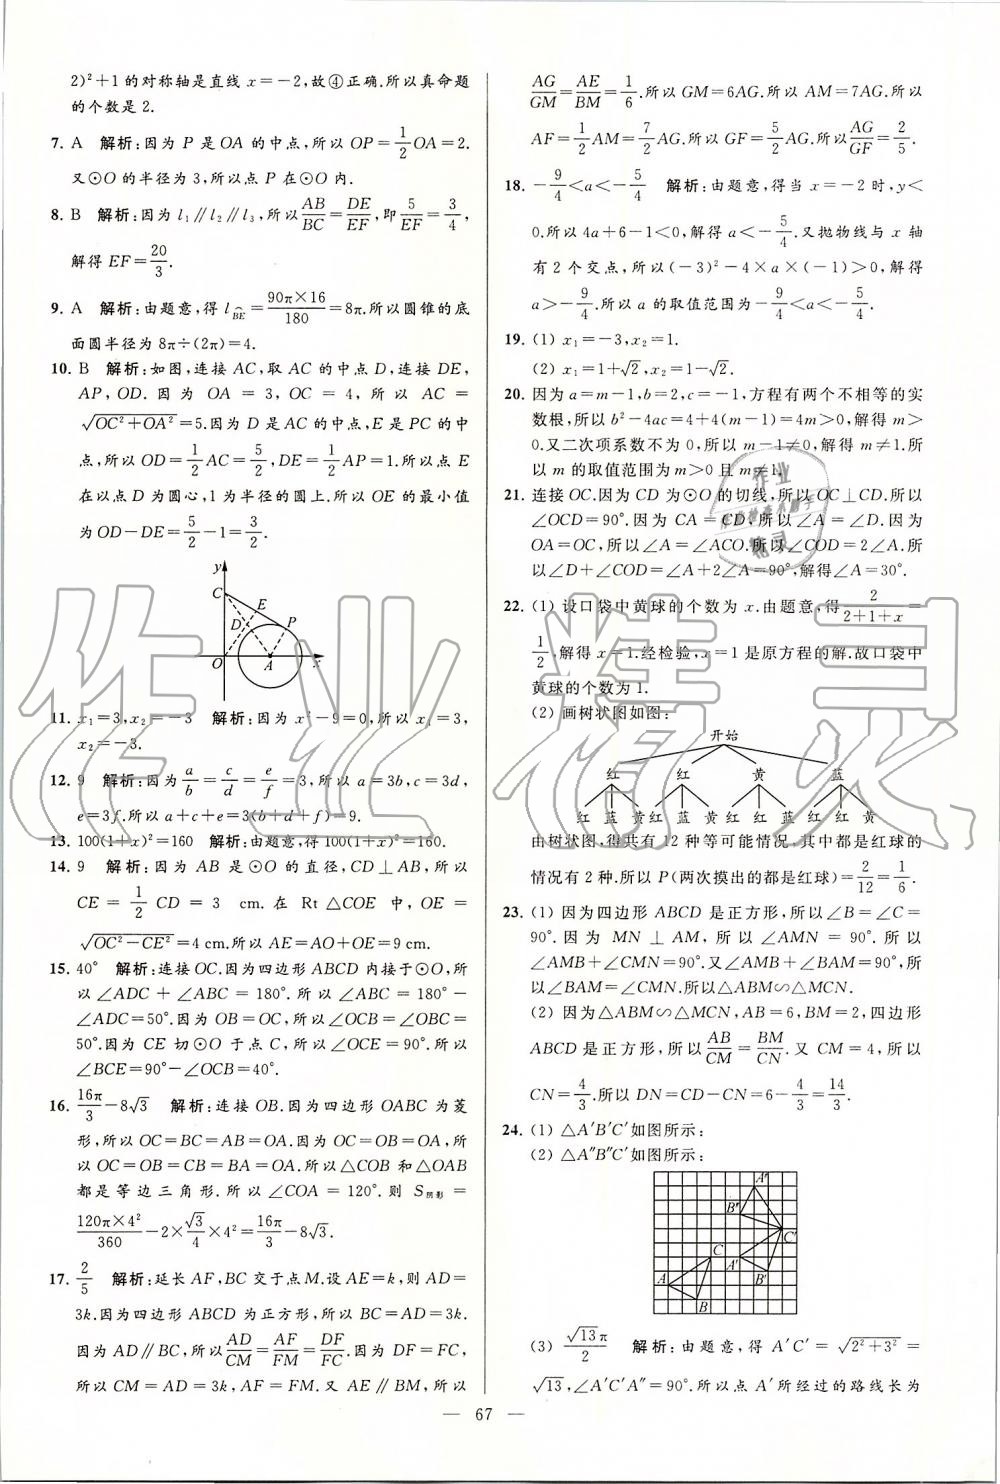 2)²+1的对称轴是直线x=-2,故④正确.所以真命题
的个数是2.
7. A 解析:因为P是OA的中点,所以OP=1/2OA=2.
又⊙O的半径为3,所以点P在⊙O内.
8. B 解析:因为l₁∥l₂∥l₃,所以AB/BC=DE/EF,即5/EF=3/4,
解得EF=20/3.
9. A 解析:由题意,得l⌒BE=90π×16/180=8π.所以圆锥的底
面圆半径为8π÷(2π)=4.
10. B 解析:如图,连接AC,取AC的中点D,连接DE,
AP,OD.因为OA=3,OC=4,所以AC=
√(OC²+OA²)=5.因为D是AC的中点,E是PC的中
点,所以OD=1/2AC=5/2,DE=1/2AP=1.所以点E
在以点D为圆心,1为半径的圆上.所以OE的最小值
为OD-DE=5/2-1=3/2.
y
C
E
D
P
O
A
x
11. x₁=3,x₂=-3 解析:因为x²-9=0,所以x₁=3,
x₂=-3.
12. 9 解析:因为a/b=c/d=e/f=3,所以a=3b,c=3d,
e=3f.所以a+c+e=3(b+d+f)=9.
13. 100(1+x)²=160 解析:由题意,得100(1+x)²=160.
14. 9 解析:因为AB是⊙O的直径,CD⊥AB,所以
CE=1/2CD=3 cm.在Rt△COE中,OE=
√(OC²-CE²)=4 cm.所以AE=AO+OE=9 cm.
15. 40° 解析:连接OC.因为四边形ABCD内接于⊙O,所
以∠ADC+∠ABC=180°.所以∠ABC=180°-
∠ADC=50°.因为OB=OC,所以∠OCB=∠OBC=
50°.因为CE切⊙O于点C,所以∠OCE=90°.所以
∠BCE=90°-∠OCB=40°.
16. 16π/3-8√3 解析:连接OB.因为四边形OABC为菱
形,所以OC=BC=AB=OA.因为OC=OB=OA,所
以OC=OB=CB=BA=OA.所以△COB和△OAB
都是等边三角形.所以∠COA=120°.则S阴影=
120π×4²/360-2×√3/4×4²=16π/3-8√3.
17. 2/5 解析:延长AF,BC交于点M.设AE=k,则AD=
3k.因为四边形ABCD为正方形,所以BC=AD=3k.
因为AD∥BC,所以AD/CM=AF/FM=DF/FC.因为DF=FC,
所以CM=AD=3k,AF=FM.又AE∥BM,所以
AG/GM=AE/BM=1/6.所以GM=6AG.所以AM=7AG.所以
AF=1/2AM=7/2AG.所以GF=5/2AG.所以AG/GF=2/5.
18. -9/4<a<-5/4 解析:由题意,得当x=-2时,y<
0.所以4a+6-1<0,解得a<-5/4.又抛物线与x轴
有2个交点,所以(-3)²-4×a×(-1)>0,解得
a>-9/4.所以a的取值范围为-9/4<a<-5/4.
19. (1) x₁=-3,x₂=1.
(2) x₁=1+√2,x₂=1-√2.
20. 因为a=m-1,b=2,c=-1,方程有两个不相等的实
数根,所以b²-4ac=4+4(m-1)=4m>0,解得m>
0.又二次项系数不为0,所以m-1≠0,解得m≠1.所
以m的取值范围为m>0且m≠1.
21. 连接OC.因为CD为⊙O的切线,所以OC⊥CD.所以
∠OCD=90°.因为CA=CD,所以∠A=∠D.因为
OA=OC,所以∠A=∠ACO.所以∠COD=2∠A.所
以∠D+∠COD=∠A+2∠A=90°,解得∠A=30°.
22. (1) 设口袋中黄球的个数为x.由题意,得2/(2+1+x)=
1/2.解得x=1.经检验,x=1是原方程的解.故口袋中
黄球的个数为1.
(2) 画树状图如图:
开始
红 红 黄 蓝
红 黄 蓝 红 黄 蓝 红 红 蓝 红 红 黄
由树状图,得共有12种等可能情况.其中都是红球的
情况有2种.所以P(两次摸出的都是红球)=2/12=1/6.
23. (1) 因为四边形ABCD是正方形,所以∠B=∠C=
90°.因为MN⊥AM,所以∠AMN=90°.所以
∠AMB+∠CMN=90°.又∠AMB+∠BAM=90°,所
以∠BAM=∠CMN.所以△ABM∽△MCN.
(2) 因为△ABM∽△MCN,AB=6,BM=2,四边形
ABCD是正方形,所以AB/CM=BM/CN.又CM=4,所以
CN=4/3.所以DN=CD-CN=6-4/3=14/3.
24. (1) △A′B′C′如图所示:
(2) △A″B″C′如图所示:
A″
B″
C′
C
A′
B′
A
B
(3) √13π/2 解析:由题意,得A′C′=√(2²+3²)=
√13,∠A′C′A″=90°.所以点A′所经过的路线长为
— 67 —
作业精灵